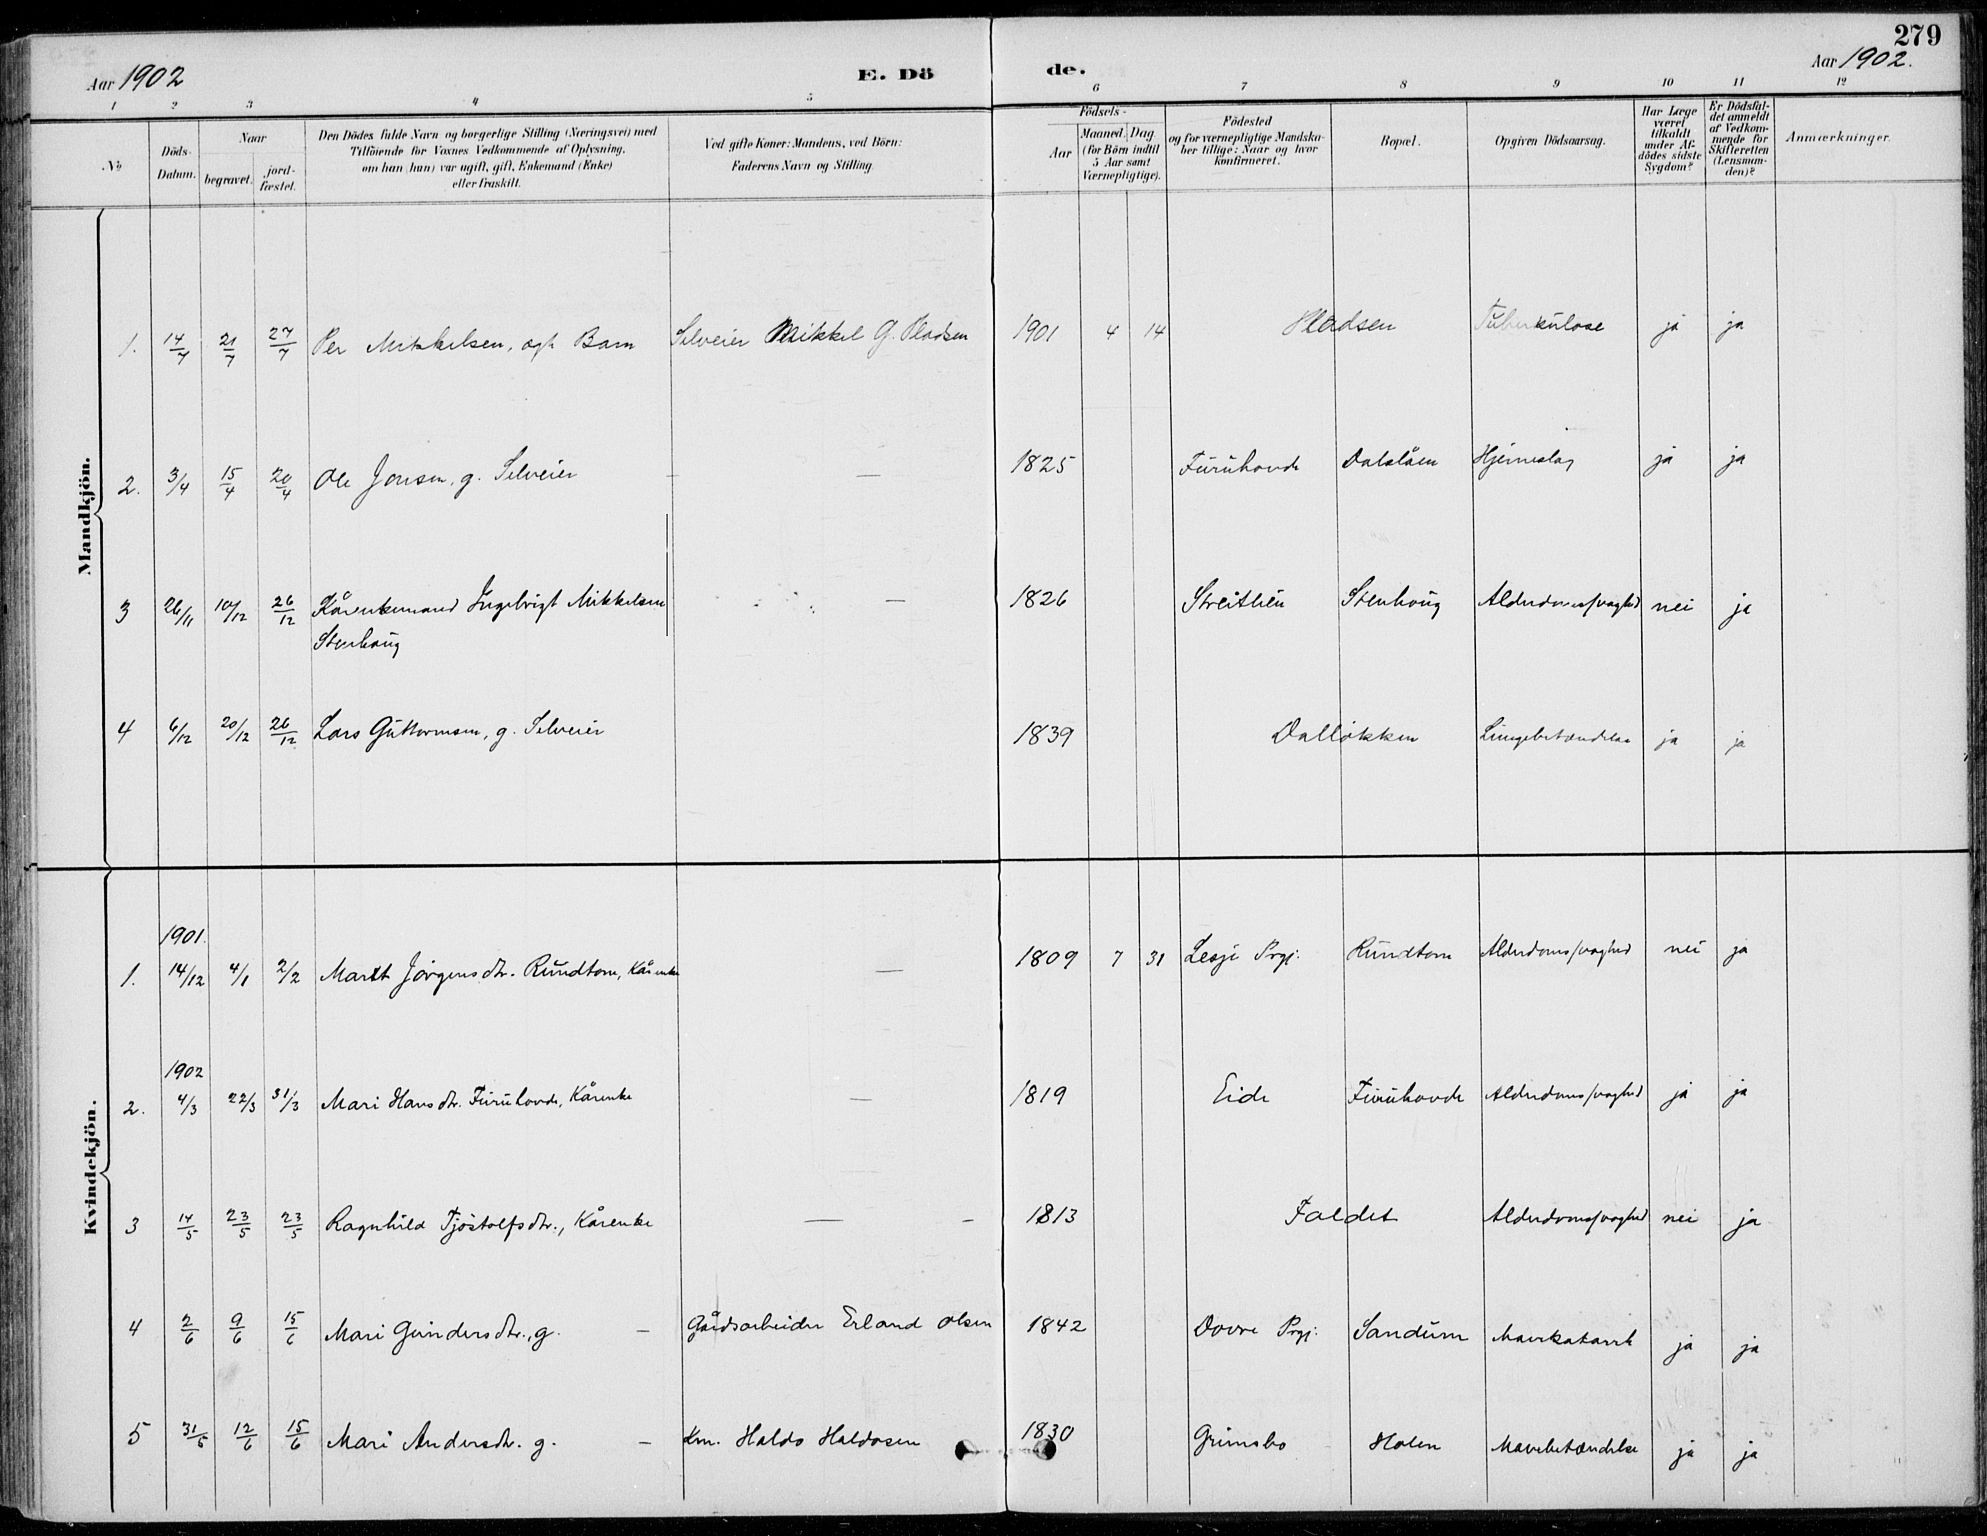 279
Aar 1902
E. Dö
de.
Aar 1902.
1 2 3 4 5 6 7 8 9 10 11 12
No
Döds-Datum.
Naar
begravet.
jord-fæstet.
Den Dödes fulde Navn og borgerlige Stilling (Næringsvei) med
Tilföiende for Voxnes Vedkommende af Oplysning,
om han (hun) var ugift, gift, Enkemand (Enke)
eller fraskilt.
Ved gifte Koner: Mandens, ved Börn:
Faderens Navn og Stilling.
Födsels-
Aar
Maaned. Dag
(for Börn indtil
5 Aar samt
Værnepligtige).
Födested
og for værnepligtige Mandska-
ber tillige: Naar og hvor
konfirmeret.
Bopæl.
Opgiven Dödsaarsag.
Har Læge
været
tilkaldt
under Af-
dödes sidste
Sygdom?
Er Dödsfal-
det anmeldt
af Vedkom-
mende for
Skifteretten
(Lensman-
den)?
Anmærkninger.
Mandkjön.
1. 14/7 21/7 27/7 Per Mikkelsen, ægt. Barn Selveier Mikkel G. Pladsen 1901 4 14 Pladsen Tuberkulose ja ja
2. 3/4 15/4 20/4 Ole Jonsen, g. Selveier — — 1825 Furuhovde Dalslåen Hjerneslag ja ja
3 26/11 10/12 26/12 Kårenkemand Ingebrigt Mikkelsen — 1826 Streitlien Stenhoug Alderdomssvaghed nei ja
Stenhoug
4 6/12 20/12 26/12 Lars Guttormsen, g. Selveier 1839 Dalløkken Lungebetændelse ja ja
Kvindekjön.
1901.
1. 14/12 4/1 2/2 Marit Jørgensdtr. Rundtom, Kårenke — 1809 7 31 Lesje Prgj. Rundtom Alderdomssvaghed nei ja
1902
2. 4/3 22/3 31/3 Mari Hansdtr. Furuhovde, Kårenke — 1819 Eide Furuhovde Alderdomssvaghed ja ja
3 14/5 23/5 23/5 Ragnhild Tjøstolfsdtr., Kårenke — — 1813 Faldet Alderdomssvaghed nei ja
4 2/6 9/6 15/6 Mari Gundersdtr., g. — Gårdsarbeider Erland Olsen 1842 Dovre Prgj. Sandum Mavekatarrh ja ja
5 31/5 12/6 15/6 Mari Andersdtr. g. — Km. Haldo Haldosen 1830 Grimsbo Holen Mavebetændelse ja ja